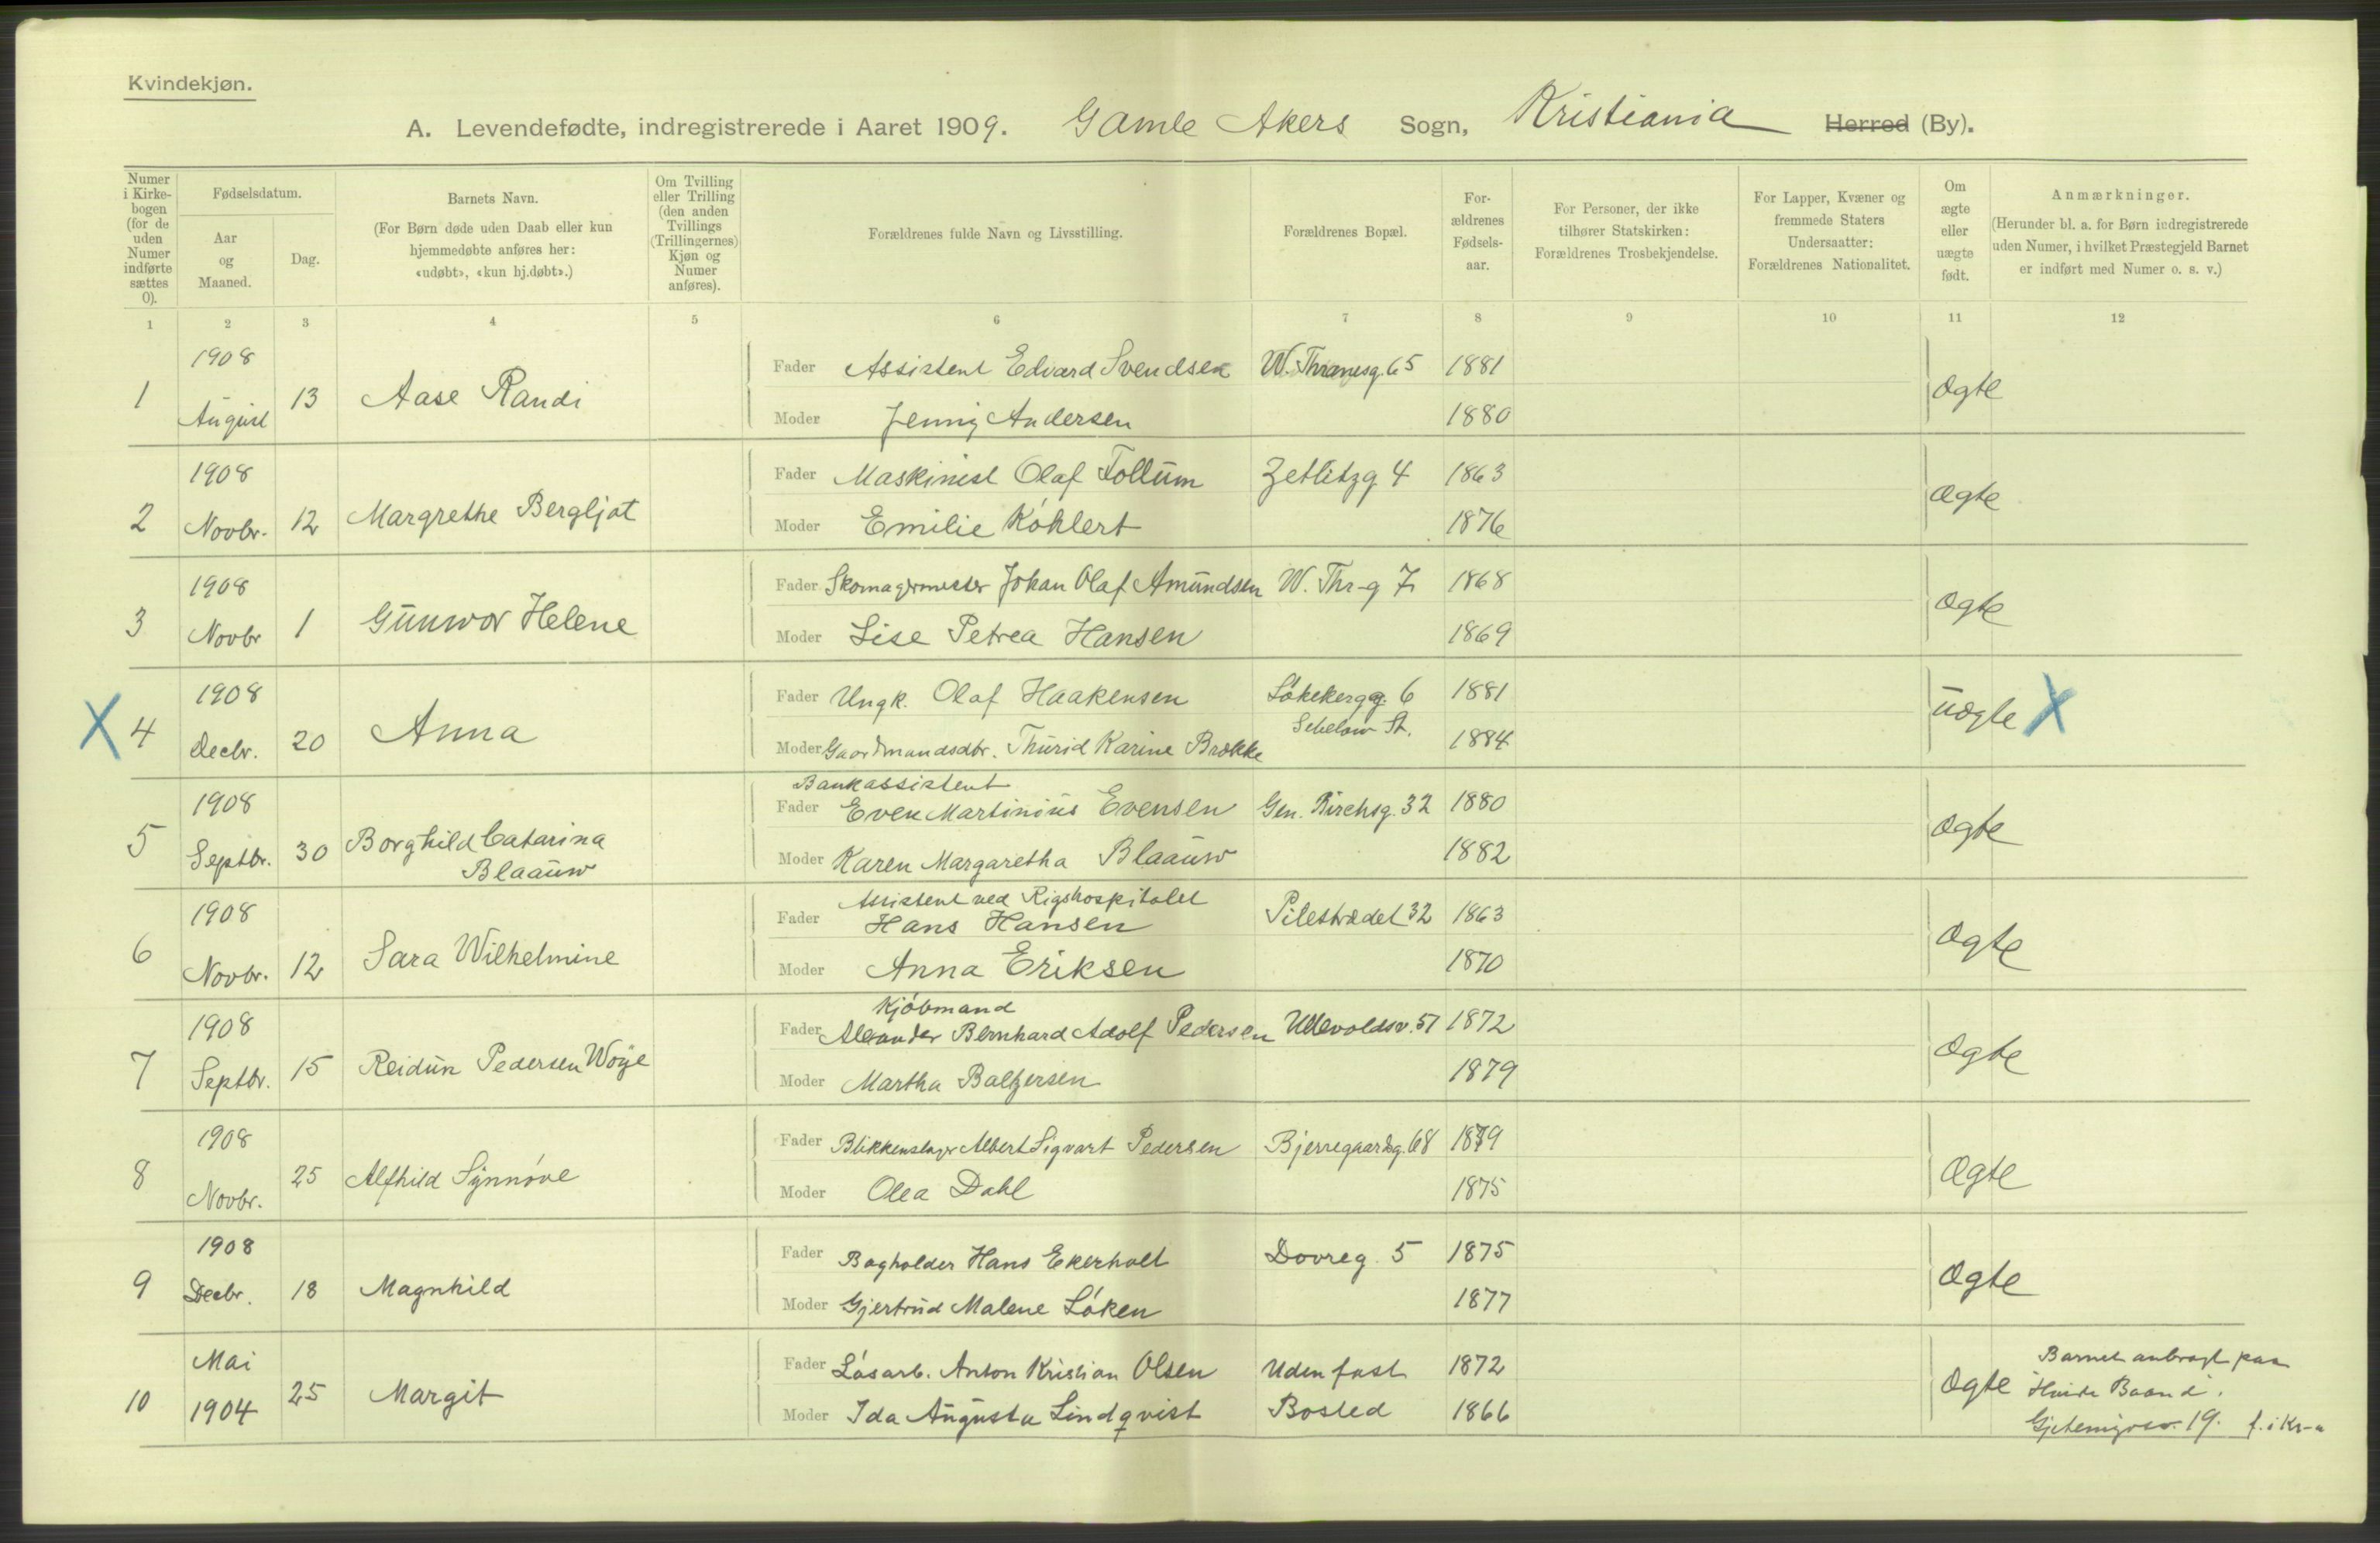 Kvindekjøn.
A. Levendefødte, indregistrerede i Aaret 1909. Gamle Akers Sogn, Kristiania Herred (By).
Numer i Kirke-bogen (for de uden Numer indførte sættes 0).
Fødselsdatum.
Aar og Maaned.
Dag.
Barnets Navn.
(For Børn døde uden Daab eller kun hjemmedøbte anføres her: «udøbt», «kun hj.døbt».)
Om Tvilling eller Trilling (den anden Tvillings (Trillingernes) Kjøn og Numer anføres).
Forældrenes fulde Navn og Livsstilling.
Forældrenes Bopæl.
For-ældrenes Fødsels-aar.
For Personer, der ikke tilhører Statskirken: Forældrenes Trosbekjendelse.
For Lapper, Kvæner og fremmede Staters Undersaatter: Forældrenes Nationalitet.
Om ægte eller uægte født.
Anmærkninger.
(Herunder bl. a. for Børn indregistrerede uden Numer, i hvilket Præstegjeld Barnet er indført med Numer o. s. v.)
1 2 3 4 5 6 7 8 9 10 11 12
1 1908 August 13 Aase Randi
Fader Assistent Edvard Svendsen W. Thranesg. 65 1881
Moder Jenny Andersen 1880
Ægte
2 1908 Novbr. 12 Margrethe Bergljot
Fader Maskinist Olaf Follum Zetlitzg 4 1863
Moder Emilie Köhlert 1876
Ægte
3 1908 Novbr 1 Gunvor Helene
Fader Skomagermester Johan Olaf Amundsen W. Thr-g 7 1868
Moder Lise Petrea Hansen 1869
Ægte
X 4 1908 Decbr. 20 Anna
Fader Ungk. Olaf Haakensen 6 1881
Moder Gaardmandsdtr. Thurid Karine Brække St. 1884
Uægte X
5 1908 Septbr. 30 Borghild Catarina Blaauw
Bankassistent
Fader Even Martinius Evensen Gen. Birchsg. 32 1880
Moder Karen Margaretha Blaauw 1882
Ægte
6 1908 Novbr. 12 Sara Wilhelmine
Assistent ved Rigshospitalet
Fader Hans Hansen Pilestrædet 32 1863
Moder Anna Eriksen 1870
Ægte
7 1908 Septbr. 15 Reidun Pedersen Woye
Kjøbmand
Fader Bernhard Adolf Pedersen Ullevoldsv. 57 1872
Moder Martha Baltzersen 1879
Ægte
8 1908 Novbr. 25 Alfhild Synnøve
Fader Blikkenslager Albert Sigvart Pedersen Bjerregaardsg. 68 1879
Moder Olea Dahl 1875
Ægte
9 1908 Decbr. 18 Magnhild
Fader Bogholder Hans Ekerholt Dovreg. 5 1875
Moder Gjertrud Malene Løken 1877
Ægte
10 Mai 1904 25 Margit
Fader Løsarb. Anton Kristian Olsen Uden fast 1872
Moder Ida Augusta Lindqvist Bosted 1866
Ægte
Barnet anbragt paa
"Hvide Baand".
19. f. i Kr-a